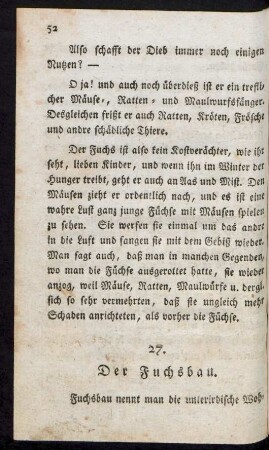 52
Also schafft der Dieb immer noch einigen
Nutzen? —
O ja! und auch noch überdieß ist er ein trefli-
cher Mäuse-, Ratten- und Maulwurfsfänger.
Desgleichen frißt er auch Ratten, Kröten, Frösche
und andre schädliche Thiere.
Der Fuchs ist also kein Kostverächter, wie ihr
seht, lieben Kinder, und wenn ihn im Winter der
Hunger treibt, geht er auch an Aas und Mist. Den
Mäusen zieht er ordentlich nach, und es ist eine
wahre Lust ganz junge Füchse mit Mäusen spielen
zu sehen. Sie werfen sie einmal um das andre
in die Luft und fangen sie mit dem Gebiß wieder.
Man sagt auch, daß man in manchen Gegenden,
wo man die Füchse ausgerottet hatte, sie wieder
anzog, weil Mäuse, Ratten, Maulwürfe u. dergl.
sich so sehr vermehrten, daß sie ungleich mehr
Schaden anrichteten, als vorher die Füchse.
27.
Der Fuchsbau.
Fuchsbau nennt man die unterirdische Woh-